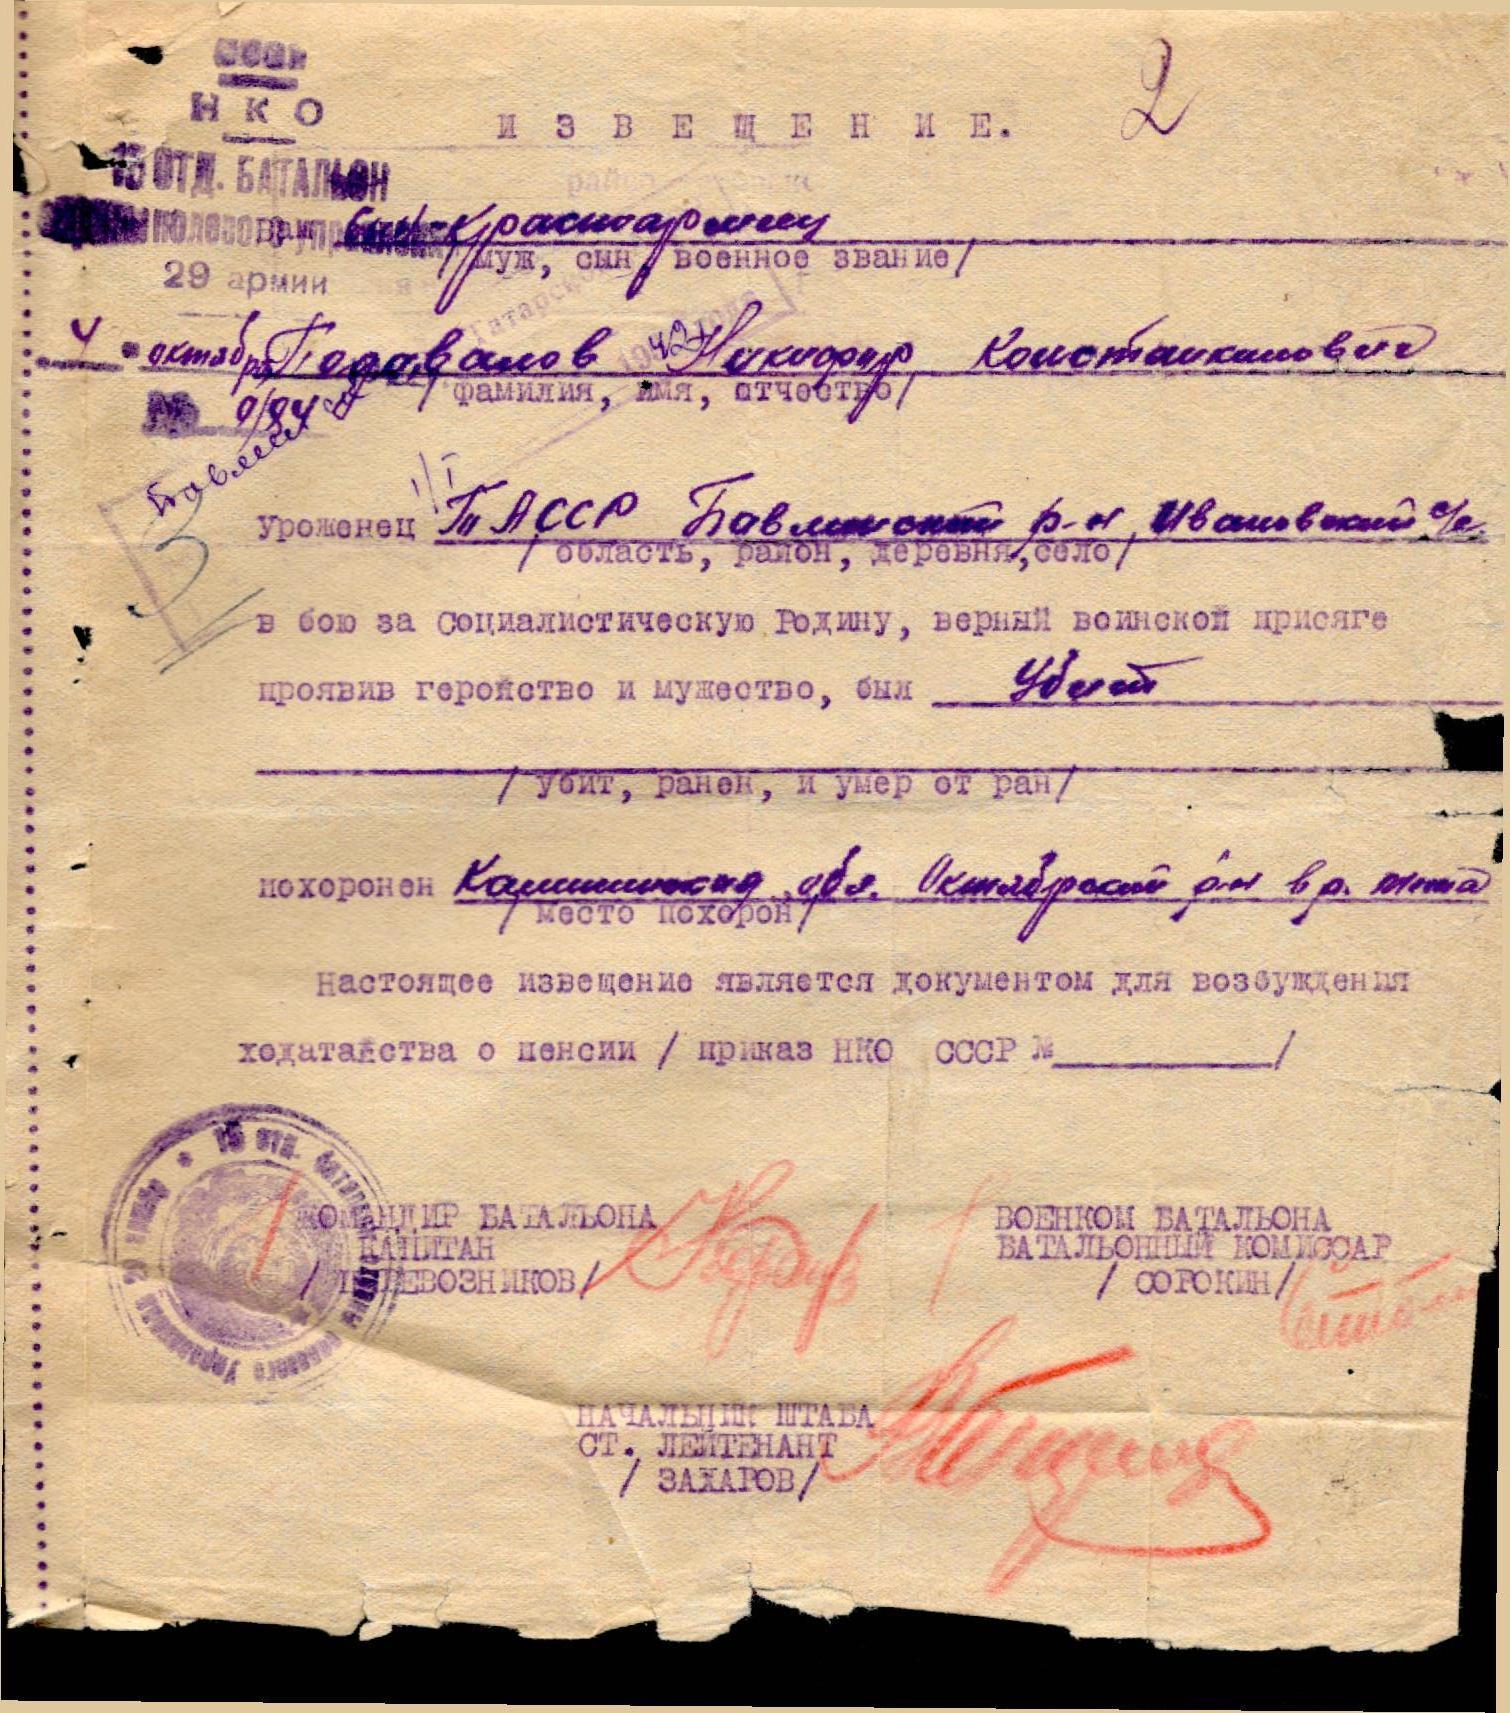 НКО
2
ИЗВЕЩЕНИЕ.
15 ОТД. БАТАЛЬОН
Ваш сын-красноармеец
/муж, сын, военное звание/
29 армии
4 октября 1942 Никифор Константинович
/фамилия, имя, отчество/
№ 0/84
уроженец ТАССР Бавлинский р-н, Ивановский с/с
/область, район, деревня, село/
3
в бою за Социалистическую Родину, верный воинской присяге
проявив геройство и мужество, был убит
/ убит, ранен, и умер от ран/
похоронен Калининская обл. Октябрьский р-н в р.
/ место похорон/
Настоящее извещение является документом для возбуждения
ходатайства о пенсии / приказ НКО СССР №__________/
15 отд. батальон
КОМАНДИР БАТАЛЬОНА
КАПИТАН
/ ПЕРЕВОЗНИКОВ/
ВОЕНКОМ БАТАЛЬОНА
БАТАЛЬОННЫЙ КОМИССАР
/ СОРОКИН/
НАЧАЛЬНИК ШТАБА
СТ. ЛЕЙТЕНАНТ
/ ЗАХАРОВ/